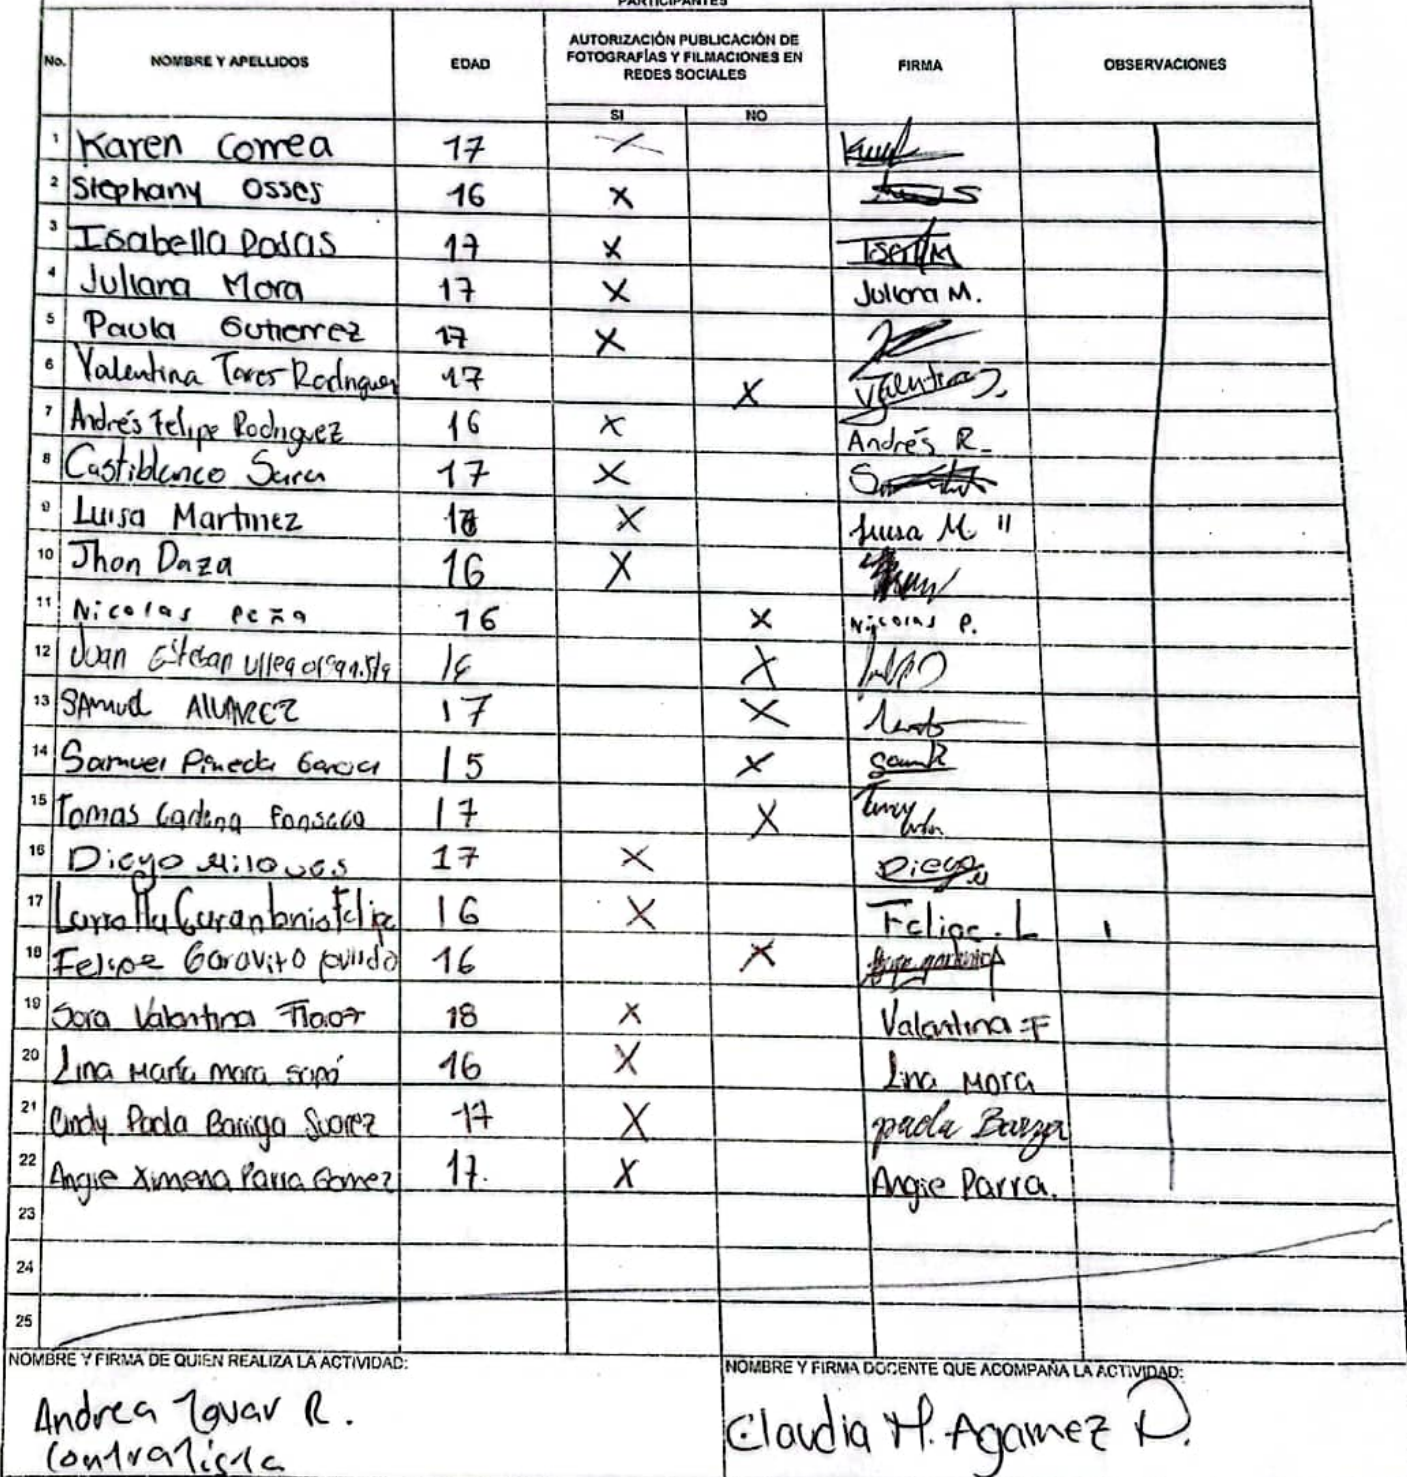 PARTICIPANTES
No. NOMBRE Y APELLIDOS EDAD AUTORIZACIÓN PUBLICACIÓN DE FOTOGRAFÍAS Y FILMACIONES EN REDES SOCIALES FIRMA OBSERVACIONES
SI NO
1 Karen Correa 17 X
2 Stephany Osses 16 X
3 Isabella Posas 17 X
4 Juliana Mora 17 X Juliana M.
5 Paula Gutierrez 17 X
6 Valentina Torres Rodriguez 17 X Valentina
7 Andrés Felipe Rodriguez 16 X Andrés R.
8 Castiblanco Sara 17 X
9 Luisa Martinez X Luisa M.
10 Jhon Daza 16 X
11 Nicolas Peña 16 X Nicolas P.
12 Juan Esteban 16 X
13 SAmuel AlvAREZ 17 X
14 Samuel Pineda Garcia 15 X
15 Tomas Cadena Fonseca 17 X
16 Diego 17 X Diego
17 Felipe 16 X Felipe. L
18 Felipe Garavito 16 X
19 Sara Valentina 18 X Valentina F
20 Lina María mora 16 X Lina Mora
21 Cindy Paola Barriga Suarez 17 X paola
22 Angie Ximena Parra Gomez 17. X Angie Parra.
23
24
25
NOMBRE Y FIRMA DE QUIEN REALIZA LA ACTIVIDAD: NOMBRE Y FIRMA DOCENTE QUE ACOMPAÑA LA ACTIVIDAD:
Andrea Tovar R. Claudia H. Agamez D.
Contratista